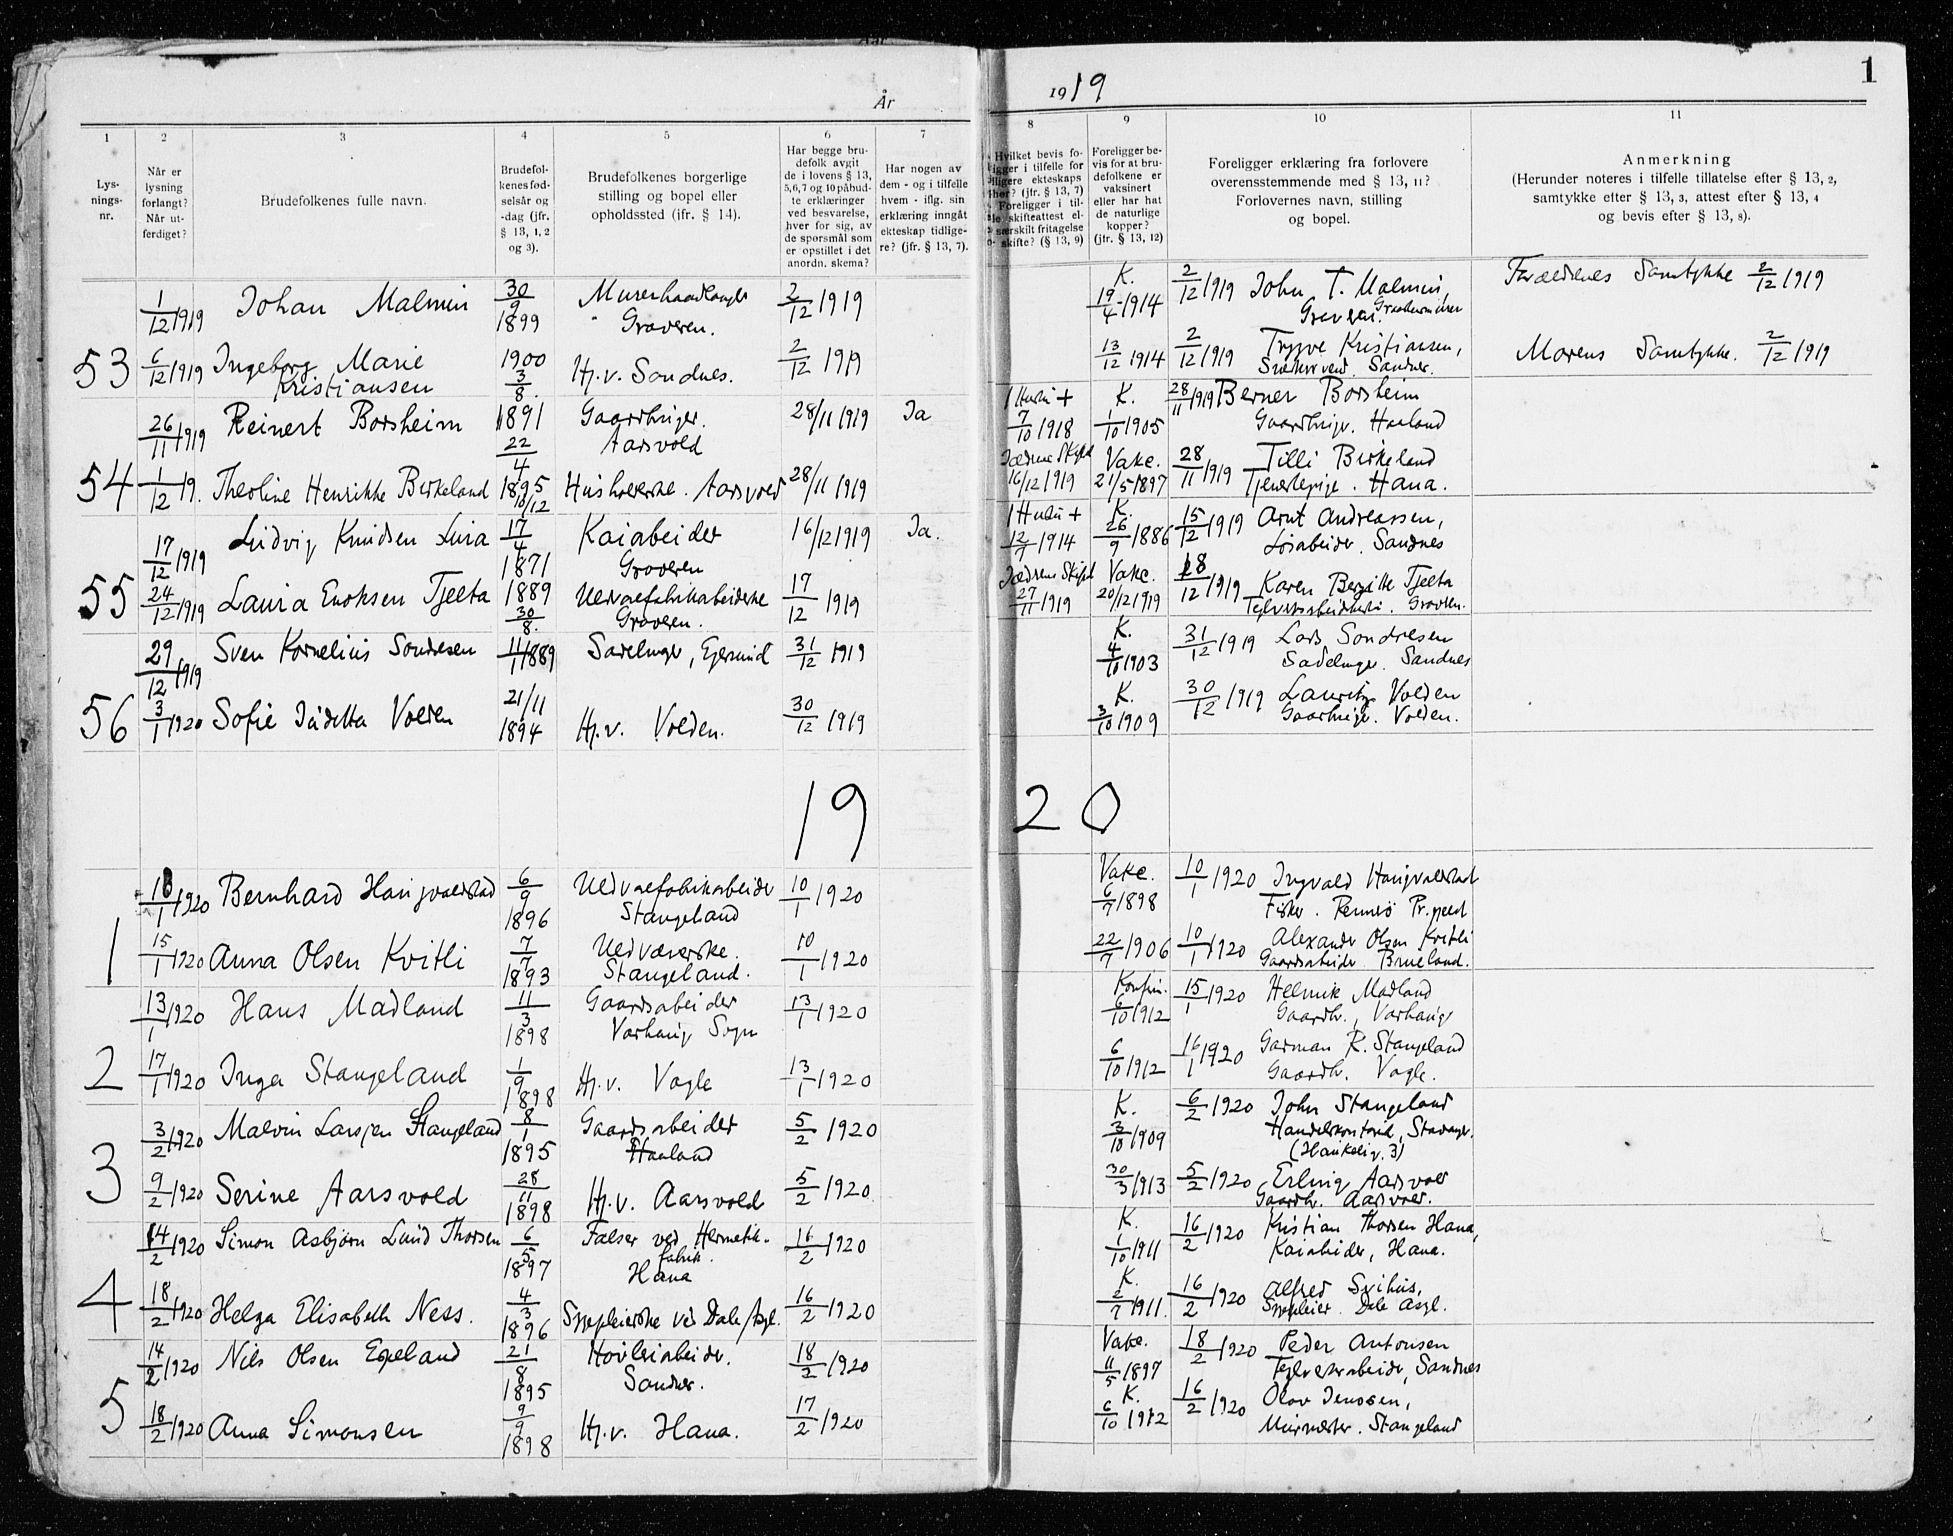 År 1919
1
1 2 3 4 5 6 7 8 9 10 11
Lys-
nings-
nr.
Når er
lysning
forlangt?
Når ut-
ferdiget?
Brudefolkenes fulle navn.
Brudefol-
kenes fød-
selsår og
-dag (jfr.
§ 13, 1, 2
og 3).
Brudefolkenes borgerlige
stilling og bopel eller
opholdssted (ifr. § 14).
Har begge bru-
defolk avgit
de i lovens § 13,
5,6,7 og 10 påbud-
te erklæringer
ved besvarelse,
hver for sig, av
de spørsmål som
er opstillet i det
anordn. skema?
Har nogen av
dem - og i tilfelle
hvem - iflg. sin
erklæring inngått
ekteskap tidlige-
re? (jfr. § 13, 7).
Hvilket bevis fo-
ligger i tilfelle for
ekteskaps
? (jfr. § 13, 7)
Foreligger i til-
skifteattest el-
særskilt fritagelse
skifte? (§ 13, 9)
Foreligger be-
vis for at bru-
defolkene er
vaksinert
eller har hat
de naturlige
kopper?
(jfr. § 13, 12)
Foreligger erklæring fra forlovere
overensstemmende med § 13, 11?
Forlovernes navn, stilling
og bopel.
Anmerkning
(Herunder noteres i tilfelle tillatelse efter § 13, 2,
samtykke efter § 13, 3, attest efter § 13, 4
og bevis efter § 13, 8).
1/12 1919 Johan Malmin 30/9 1899 Graveren. 2/12 1919 K. 19/4 1914 2/12 1919 John T. Malmin, Graveren. Forældrenes Samtykke 2/12 1919
53 6/12 1919 Ingeborg Marie Kristiansen 1900 3/8. Hj. v. Sandnes. 2/12 1919 13/12 1914 2/12 1919 Trygve Kristiansen, Sandnes. Morens Samtykke. 2/12 1919
26/11 1919 Reinert Borsheim 1891 22/4 Gaardbruger. Aarsvold 28/11 1919 Ja 1 Hustru + 7/10 1918 K. 1/10 1905 28/11 1919 Berner Borsheim Gaardbruger. Haaland
54 1/12 19. Theoline Henrikke Birkeland 1895 10/12 Husholderske. Aarsvold 28/11 1919 16/12 1919 Vakc. 21/5 1897 28/11 1919 Tilli Birkeland Tjenestepige. Hana.
17/12 1919 Ludvig Knudsen Lura 17/4 1871 Kaiabeider Graveren 16/12 1919 Ja. 1 Hustru + 12/7 1914 K. 26/9 1886 15/12 1919 Arnt Andreassen, Løsabeider. Sandnes
55 24/12 1919 Laura Enoksen Tjelta 1889 30/8. Uldvarefabrikabeiderske Graveren. 17/12 1919 27/11 1919 Vakc. 20/12 1919 18/12 1919 Karen Bergitte Tjelta Graveren.
29/12 1919 Sven Kornelius Sondresen 11/1 1889 Sadelmager, Egersund 31/12 1919 K. 4/10 1903 31/12 1919 Lars Sondresen Sadelmager. Sandnes
56 3/1 1920 Sofie Judetta Volden 21/11 1894 Hj. v. Volden. 30/12 1919 K. 3/10 1909 30/12 1919 Lauritz Volden Gaardbruger. Volden.
1920
10/1 1920 Bernhard Haugvaldstad 6/9 1896 Uldvarefabrikabeider Stangeland 10/1 1920 Vakc. 6/7 1898 10/1 1920 Ingvald Haugvaldstad Fisker. Rennesø Pr.gjeld
1 15/1 1920 Anna Olsen Kvitli 7/7 1893 Uldvæverske. Stangeland. 10/1 1920 22/7 1906 10/1 1920 Alexander Olsen Kvitli Gaardsabeider Brueland.
13/1 1920 Hans Madland 11/3 1898 Gaardsabeider Varhaug Sogn 13/1 1920 Konfirm. 6/10 1912 15/1 1920 Helmik Madland Gaardbr., Varhaug
2 17/1 1920 Inga Stangeland 1/9 1898 Hj. v. Vagle 13/1 1920 6/10 1912 16/1 1920 Garman K. Stangeland Gaardbr. Vagle.
3/2 1920 Malvin Larsen Stangeland 8/1 1895 Gaardsabeider Haaland 5/2 1920 K. 3/10 1909 6/2 1920 John Stangeland Handelskontorist, Stavanger. (Haukeligt. 3)
3 9/2 1920 Serine Aarsvold 28/11 1898 Hj. v. Aarsvold 5/2 1920 30/3 1913 5/2 1920 Erling Aarsvold Gaardbr. Aarsvold.
14/2 1920 Simon Asbjørn Lund Thorsen 6/5 1897 Falser ved Hermetik- fabrik. Hana 16/2 1920 K. 1/10 1911 16/2 1920 Kristian Thorsen Hana, Kaiabeider, Hana.
4 18/2 1920 Helga Elisabeth Ness. 4/3 1896 Sygepleierske ved Dale Asyl. 16/2 1920 K. 2/7 1911. 16/2 1920 Alfred Svihus, Sygepleier. Dale Asyl.
14/2 1920 Nils Olsen Espeland 21/8 1895 Høvleriabeider. Sandnes. 18/2 1920 Vakc. 11/5 1897 18/2 1920 Peder Antonsen Teglverksabeider, Sandnes
5 18/2 1920 Anna Simonsen 9/9 1898 Hj. v. Hana. 17/2 1920 K. 6/10 1912 16/2 1920 Olav Jenssen, Murmester. Stangeland